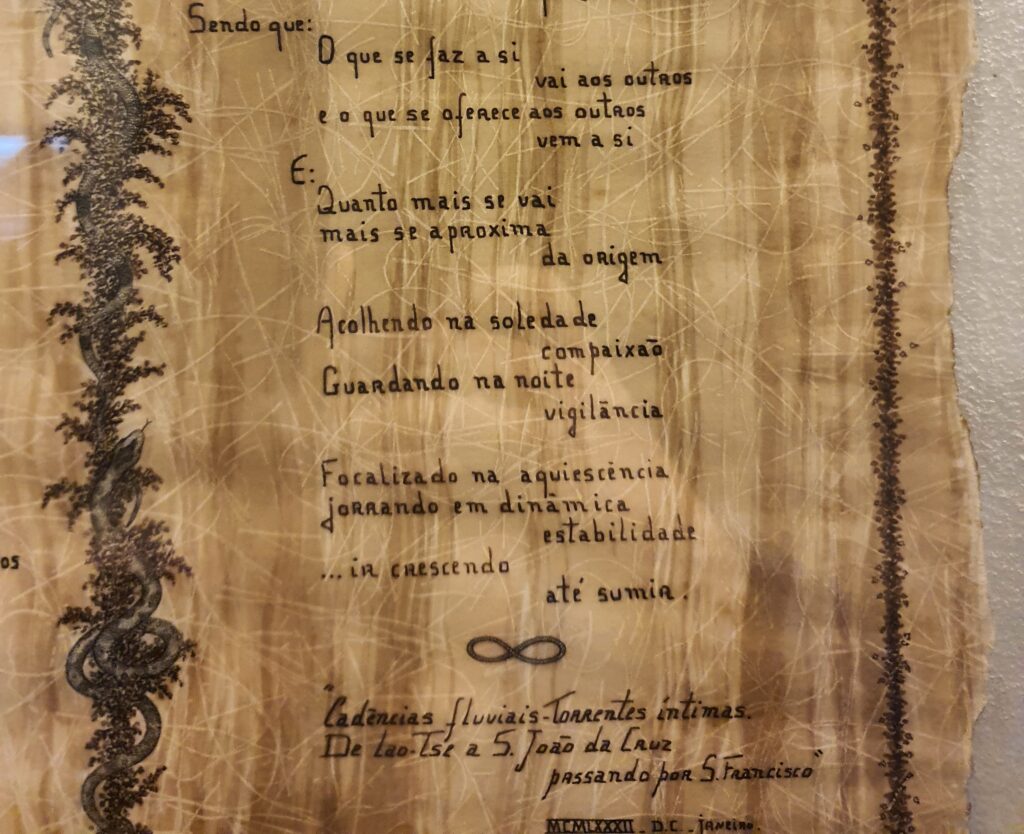 Sendo que:
O que se faz a si
vai aos outros
e o que se oferece aos outros
vem a si
E:
Quanto mais se vai
mais se aproxima
da origem
Acolhendo na soledade
compaixão
Guardando na noite
vigilância
Focalizado na aquiescência
jorrando em dinâmica
estabilidade
... ir crescendo
até sumir.
os
"Cadências fluviais-Torrentes íntimas.
De Lao-Tsé a S. João da Cruz
passando por S. Francisco"
MCMLXXXII - D.C - janeiro.